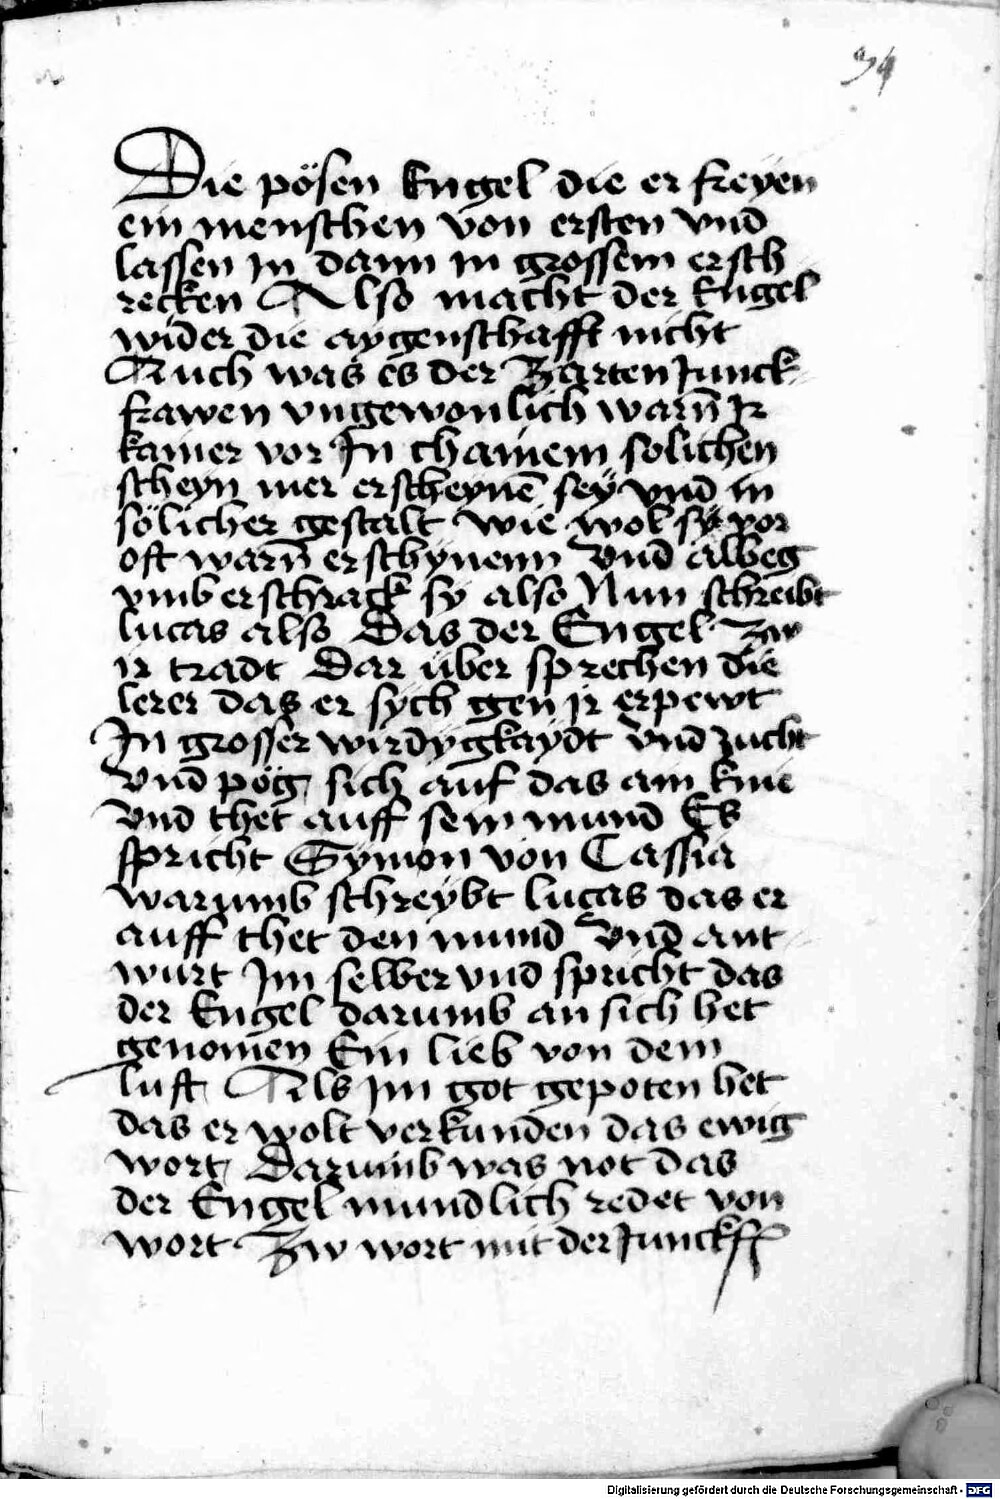 34
Die pösen Engel die er freÿen
ein menschen von ersten vnd
lassen in dann in grossem ersch
recken Also macht der Engel
wider die aÿgenschafft nicht
Auch was es der Zarten Junck
frawen vngewonlich warn̄ Ir
kainer vor In chainem solichen
scheyn mer erscheynē seÿ vnd in
sölicher gestalt wie wol sÿ vor
oft warn̄ erschÿnenn vnd albeg
vmb erschrack sy also Nun schreibt
lucas also Das der Engel Zw
ir tradt Dar über sprechen die
lerer das er sÿch gen ir erpewt
In grosser wirdÿgkaÿdt vnd zucht
vnd pög sich auf das ain knie
vnd thet auff sein mund Es
spricht Sÿmon von Cassia
warumb schreÿbt lucas das er
auff thet den mund vnd ant
wurt Im selber vnd spricht das
der Engel darumb an sich het
genomen Ein lieb von dem
luft Als im got gepoten het
das er wolt verkunden das ewig
wort Darumb was not das
der Engel mundlich redet von
wort Zw wort mit der Junckff
Digitalisierung gefördert durch die Deutsche Forschungsgemeinschaft - DFG